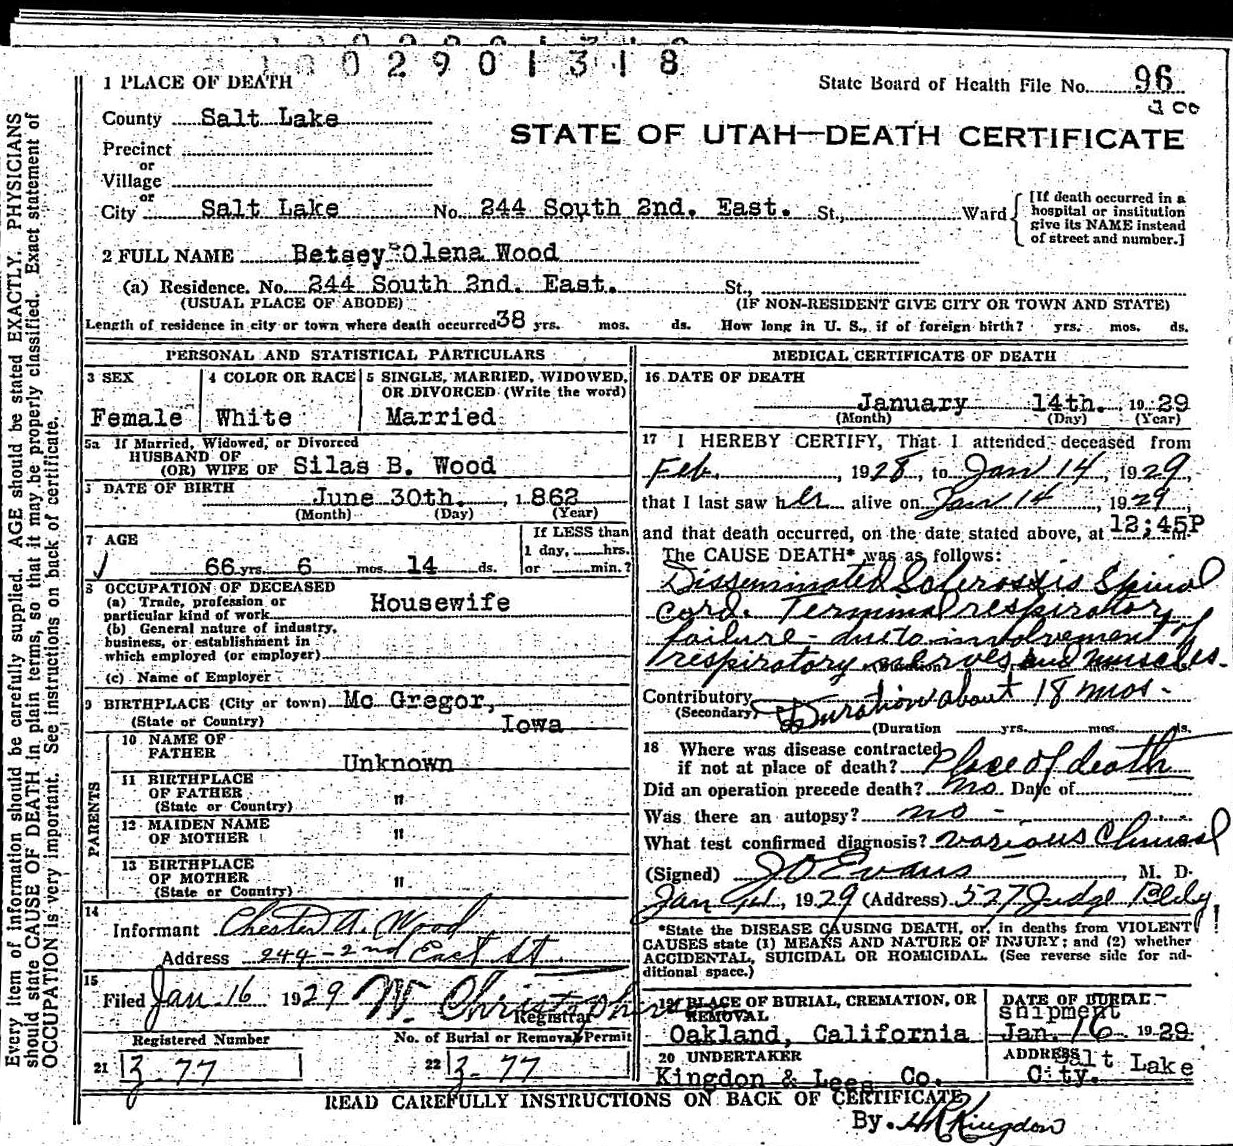 0 2 9 0 1 3 1 8
1 PLACE OF DEATH
State Board of Health File No. 96
County Salt Lake
STATE OF UTAH—DEATH CERTIFICATE
Precinct
or
Village
or
City Salt Lake No. 244 South 2nd. East. St., Ward
[If death occurred in a
hospital or institution
give its NAME instead
of street and number.]
2 FULL NAME Betsey Olena Wood
(a) Residence. No. 244 South 2nd. East. St.,
(USUAL PLACE OF ABODE) (IF NON-RESIDENT GIVE CITY OR TOWN AND STATE)
Length of residence in city or town where death occurred 38 yrs. mos. ds. How long in U. S., if of foreign birth? yrs. mos. ds.
PERSONAL AND STATISTICAL PARTICULARS
3 SEX
Female
4 COLOR OR RACE
White
5 SINGLE, MARRIED, WIDOWED,
OR DIVORCED (Write the word)
Married
5a If Married, Widowed, or Divorced
HUSBAND OF
(OR) WIFE OF Silas B. Wood
DATE OF BIRTH
June 30th, 1862
(Month) (Day) (Year)
7 AGE
66 yrs. 6 mos. 14 ds.
If LESS than
1 day, hrs.
or min.?
8 OCCUPATION OF DECEASED
(a) Trade, profession or
particular kind of work Housewife
(b) General nature of industry,
business, or establishment in
which employed (or employer)
(c) Name of Employer
9 BIRTHPLACE (City or town) Mc Gregor,
(State or Country) Iowa
PARENTS
10 NAME OF
FATHER Unknown
11 BIRTHPLACE
OF FATHER
(State or Country) "
12 MAIDEN NAME
OF MOTHER "
13 BIRTHPLACE
OF MOTHER
(State or Country) "
14
Informant Chester A. Wood
Address 244 - 2nd East St.
15
Filed Jan 16 1929 W. Christopherson
Registrar
Registered Number
21 3-77
No. of Burial or Removal Permit
22 3-77
MEDICAL CERTIFICATE OF DEATH
16 DATE OF DEATH
January 14th. 1929
(Month) (Day) (Year)
17 I HEREBY CERTIFY, That I attended deceased from
Feb. 1928, to Jan 14, 1929,
that I last saw her alive on Jan 14, 1929,
and that death occurred, on the date stated above, at 12:45P m.
The CAUSE DEATH* was as follows:
Disseminated Sclerossis Spinal
Cord. Terminal respiratory
failure - due to involvement of
respiratory nerves and muscles.
Contributory Duration about 18 mos.
(Secondary)
(Duration yrs. mos. ds.
18 Where was disease contracted
if not at place of death? Place of death
Did an operation precede death? no Date of
Was there an autopsy? no -
What test confirmed diagnosis? various Clinical
(Signed) J O Evans, M. D.
Jan 1929 (Address) 527 Judge Bldg.
*State the DISEASE CAUSING DEATH, or, in deaths from VIOLENT
CAUSES state (1) MEANS AND NATURE OF INJURY; and (2) whether
ACCIDENTAL, SUICIDAL OR HOMICIDAL. (See reverse side for ad-
ditional space.)
19 PLACE OF BURIAL, CREMATION, OR
REMOVAL
Oakland, California
DATE OF BURIAL
Shipment
Jan. 16 1929
20 UNDERTAKER
Kingdon & Lees Co.
ADDRESS Salt Lake
City.
READ CAREFULLY INSTRUCTIONS ON BACK OF CERTIFICATE
By. Kingdon
Every item of information should be carefully supplied. AGE should be stated EXACTLY. PHYSICIANS
should state CAUSE OF DEATH in plain terms, so that it may be properly classified. Exact statement of
OCCUPATION is very important. See instructions on back of certificate.